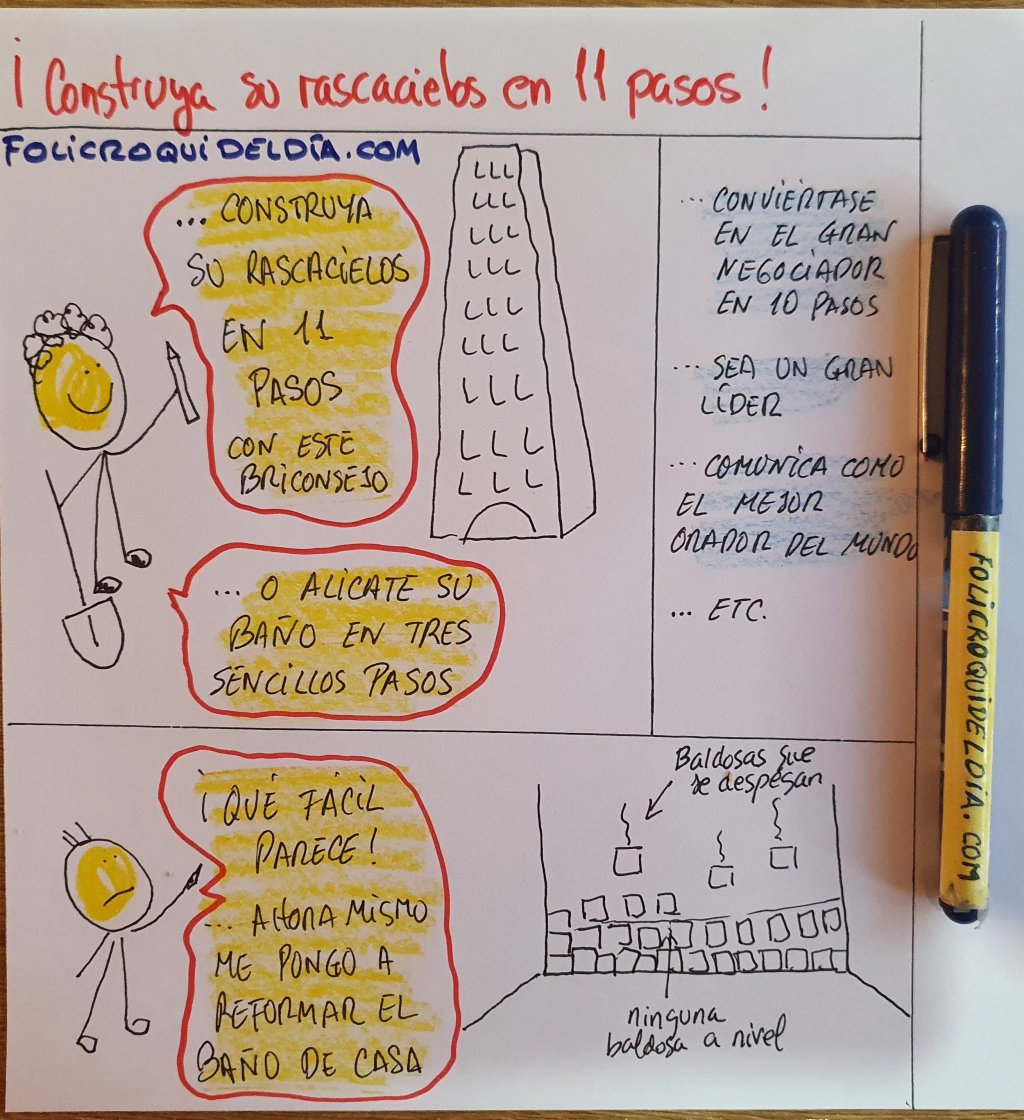 ¡Construya su rascacielos en 11 pasos!
FOLICROQUIDELDÍA.COM
... CONSTRUYA
SU RASCACIELOS
EN 11
PASOS
CON ESTE
BRICONSEJO
... O ALICATE SU
BAÑO EN TRES
SENCILLOS PASOS
... CONVIÉRTASE
EN EL GRAN
NEGOCIADOR
EN 10 PASOS
... SEA UN GRAN
LÍDER
... COMUNICA COMO
EL MEJOR
ORADOR DEL MUNDO
... ETC.
¡QUÉ FÁCIL
PARECE!
... AHORA MISMO
ME PONGO A
REFORMAR EL
BAÑO DE CASA
Baldosas que
se despegan
ninguna
baldosa a nivel
FOLICROQUIDELDIA.COM